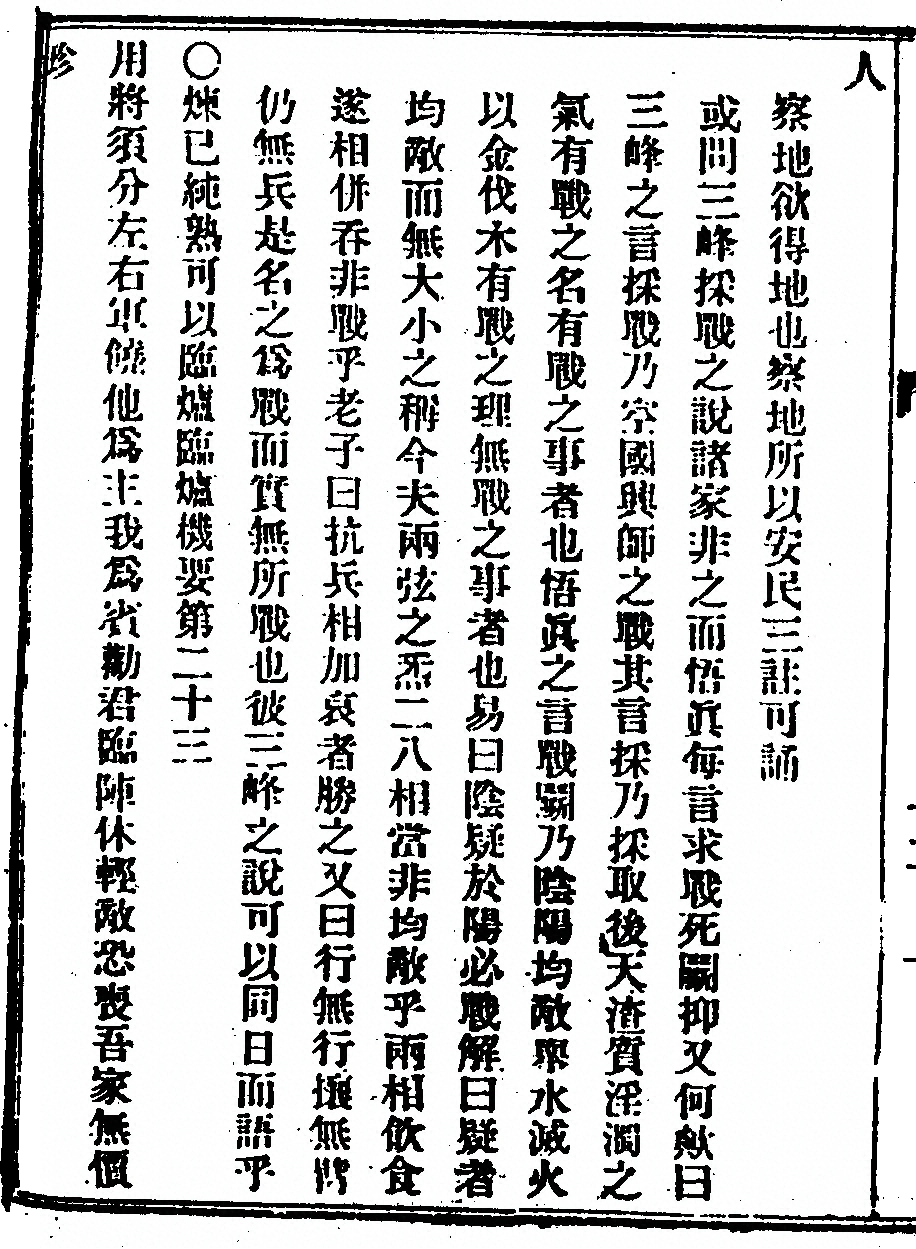 察地欲得地也察地所以安民三註可誦
或問三峰採戰之說諸家非之而悟眞每言求戰死鬭抑又何歟曰
三峰之言採戰乃空國興師之戰其言採乃採取後天渣質淫濁之
氣有戰之名有戰之事者也悟眞之言戰鬭乃陰陽均敵舉水滅火
以金伐木有戰之理無戰之事者也易曰陰疑於陽必戰解曰疑者
均敵而無大小之稱今夫兩弦之炁二八相當非均敵乎兩相飲食
遂相併吞非戰乎老子曰抗兵相加哀者勝之又曰行無行攘無臂
仍無兵是名之爲戰而實無所戰也彼三峰之說可以同日而語乎
〇煉已純熟可以臨爐臨爐機要第二十三
用將須分左右軍饒他爲主我爲賓勸君臨陣休輕敵恐喪吾家無價
珍